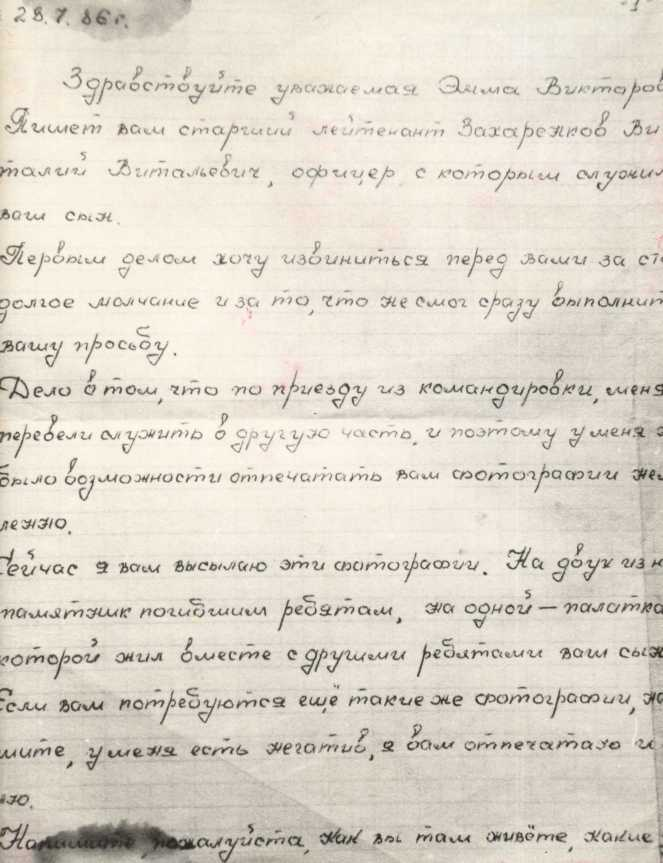 28.7.86г.
-1-
Здравствуйте уважаемая Эмма Викторов
Пишет вам старший лейтенант Захаренков Ви
талий Витальевич, офицер, с которым служил
ваш сын.
Первым делом хочу извиниться перед вами за ст
долгое молчание и за то, что не смог сразу выполнит
вашу просьбу.
Дело в том, что по приезду из командировки, меня
перевели служить в другую часть, и поэтому у меня н
было возможности отпечатать вам фотографии нем
ленно.
Сейчас я вам высылаю эти фотографии. На двух из н
памятник погибшим ребятам, на одной – палатка
которой жил вместе с другими ребятами ваш сын
Если вам потребуются ещё такие же фотографии, на
шите, у меня есть негатив, я вам отпечатаю и
лю.
Напишите, пожалуйста, как вы там живёте, какие